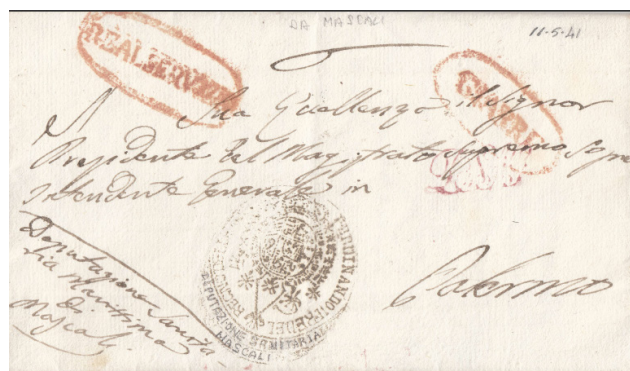 DA MASCALI
11-5-41
REAL SERVIZIO
A Sua Eccellenza il Signor
Presidente del Magistrato Supremo Sopra
intendente Generale in
Palermo
Deputazione Sanita
ria Marittima
di
Mascali
FERDINANDO
DEPUTAZIONE SANITARIA
MASCALI